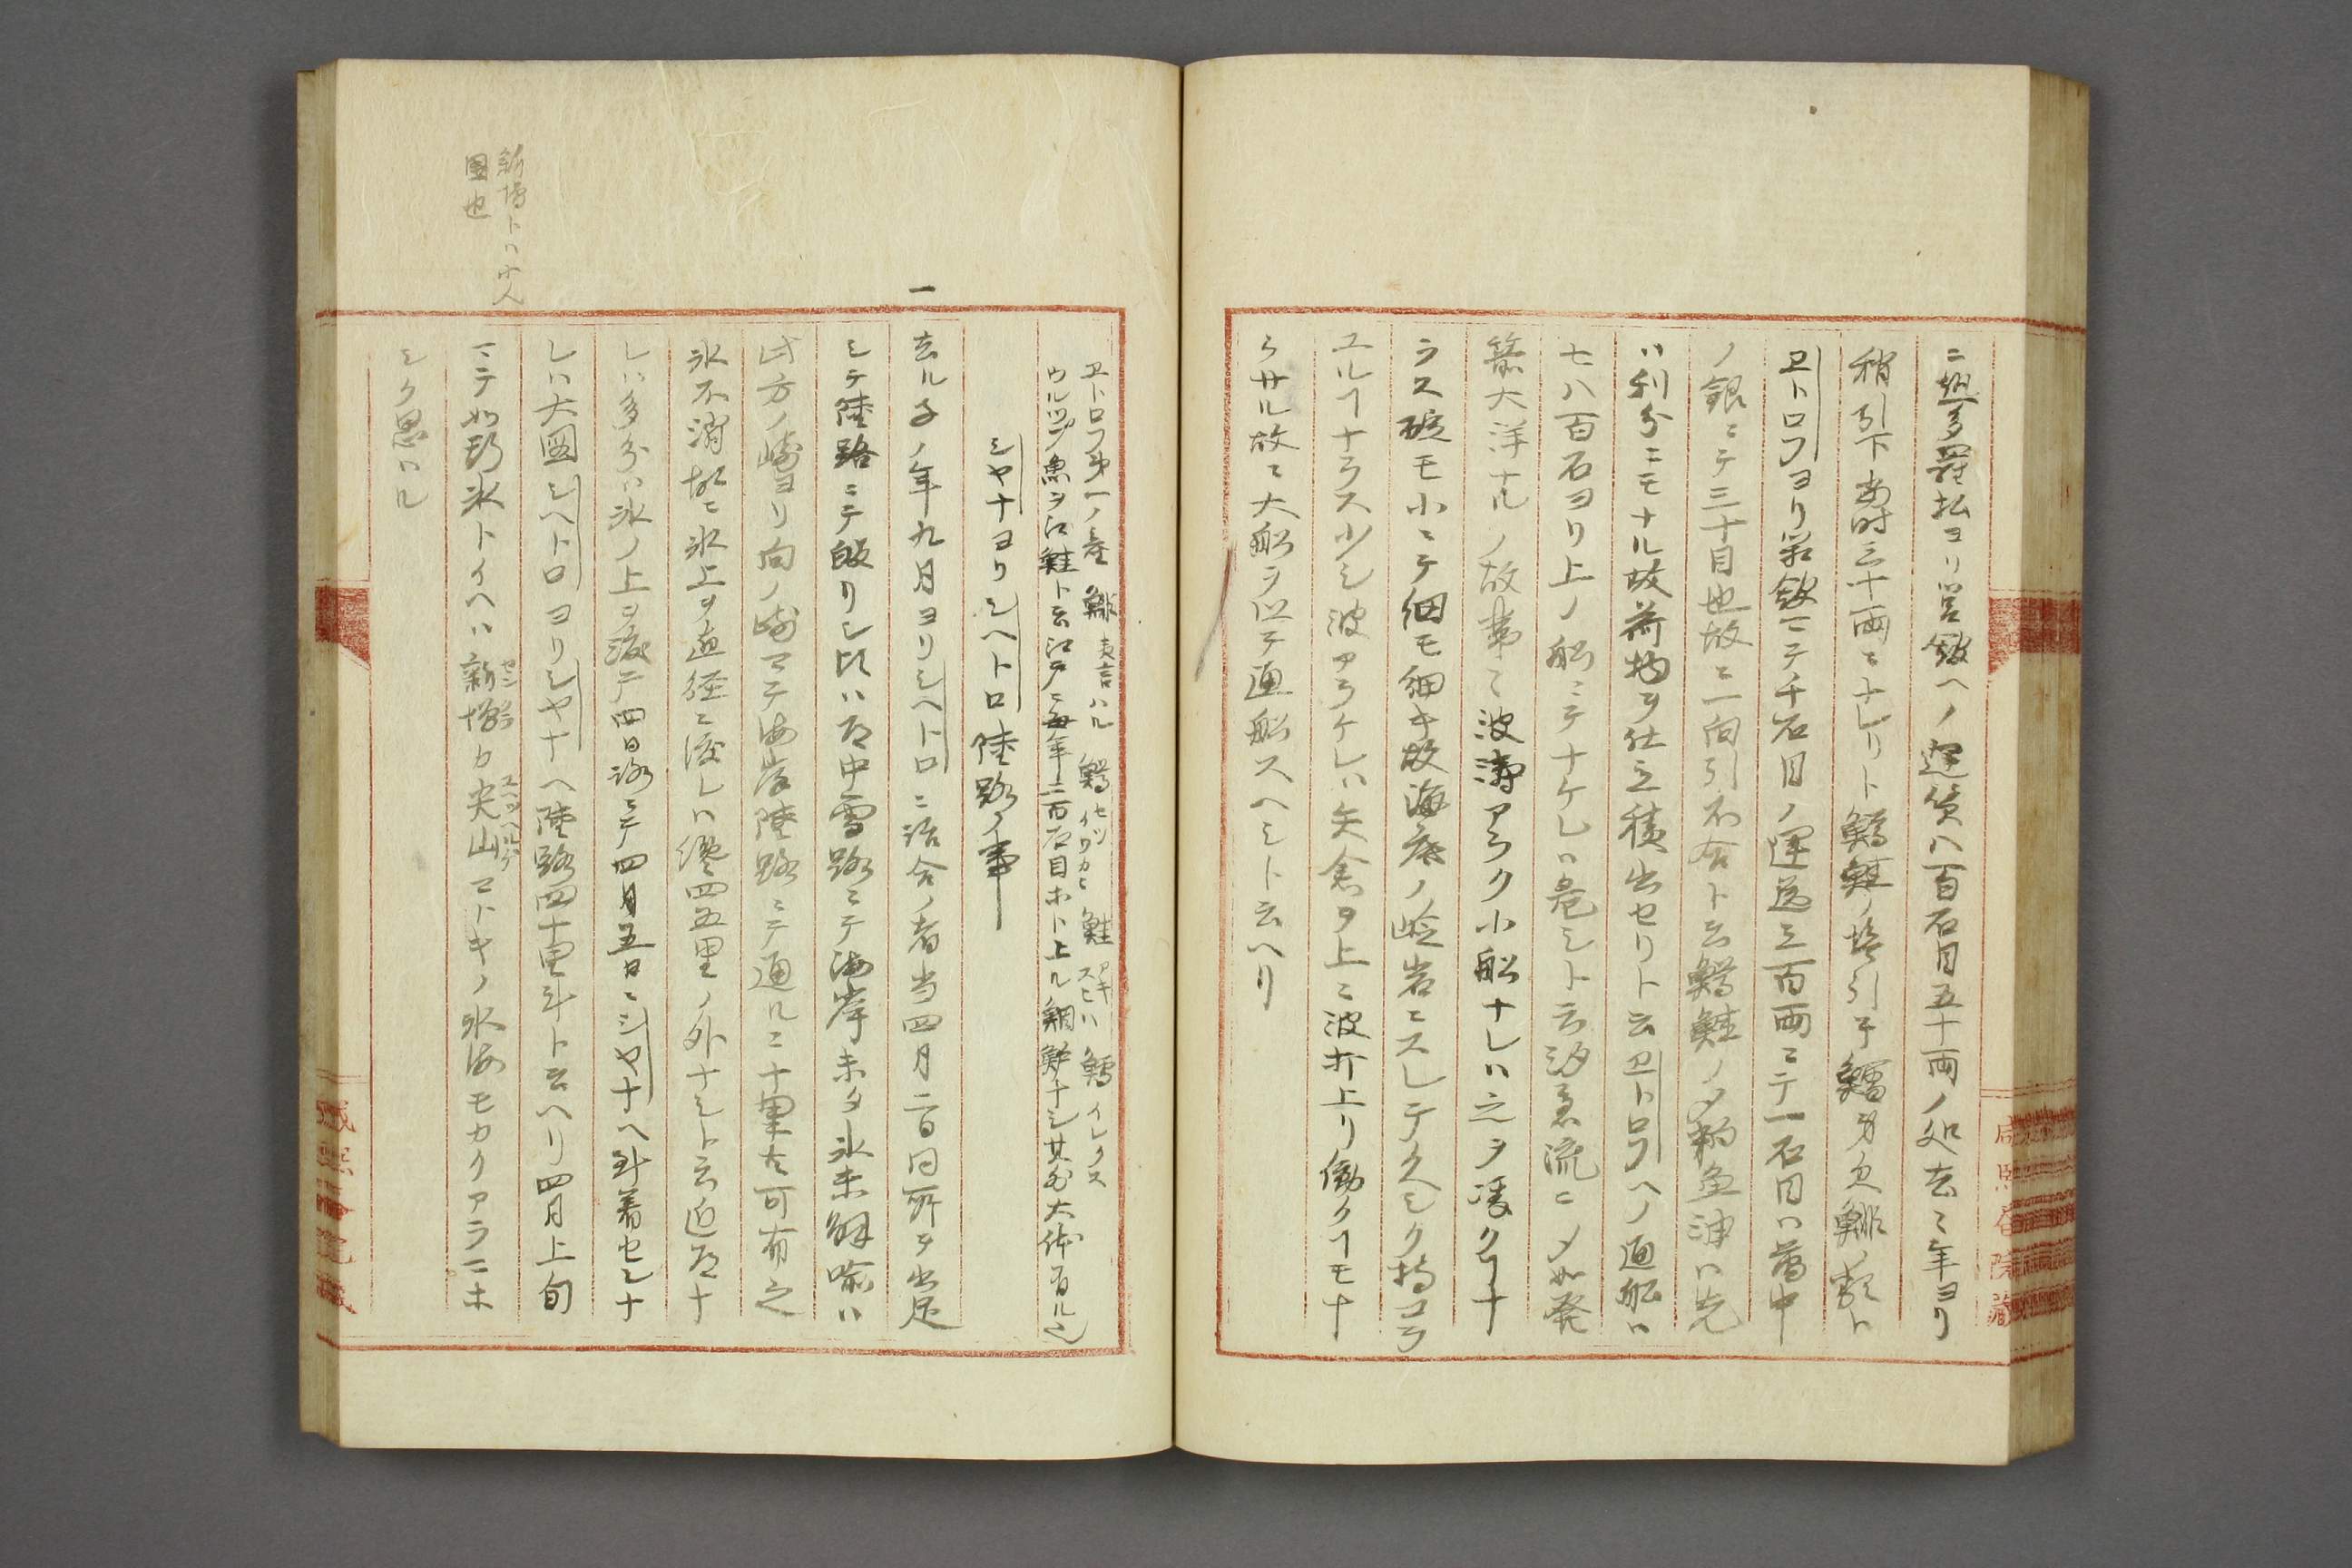 ニ越多羅払ヨリ筥舘ヘノ運賃ハ百石目五十両ノ処去ニ年ヨリ
稍引下当時三十両ニナレリト鱒鮭ノ塩引子鱈身欠鯡ノ類ト
ヱトロフヨリ筥舘マテ千石目ノ運送三百両ニテ一石目ハ葛中
ノ銀ニテ三十目也故ニ一向引不合ト云鱒鮭ノ〆粕魚油ハ先
ハ利分ニモナル故荷物ヲ仕立積出セリト云ヱトロフヘノ通船ハ
七八百石ヨリ上ノ船ニテナケレハ危シト云汐急流ニ〆如発
箭大洋ナルノ故常ニ波濤アラク小船ナレハ之ヲ凌クヿナ
ラス碇モ小ニテ綱モ細キ故海底ノ嶮岩ニスレテ久シク持コラ
ユルヿナラス少シ波アラケレハ矢倉ヲ上ニ波打上リ働クヿモナ
ラサル故ニ大船ヲ以テ通船スヘシト云ヘリ
ヱトロフ第一ノ産 鯡 夷言ハル 鱒 イワカヒ 鮭 アキ 鱈 イレクス
ウルップノ魚ヲ紅鮭ト云江戸ニ毎年二百石目ホト上ル鯛鮃ナシ其外大体有ル也
シヤナヨリシヘトロ陸路ノ事
一 去ル子ノ年九月ヨリシヘトロニ詰合ノ者当四月二日同所ヲ出足
シテ陸路ニテ皈リシ比ハ道中雪路ニテ海岸未タ氷未解喩ハ
此方ノ崎ヨリ向ノ崎マテ海岸陸路ニテ通ルニ十里才可有之
氷不消故ニ氷上ヲ直径ニ渡レハ僅四五里ノ外ナシト云近道ナ
レハ多分ハ氷ノ上ヲ渡テ四日路ニテ四月五日ニシヤナヘ到着セシナ
レハ大図シヘトロヨリシヤナヘ陸路四十里斗ト云ヘリ四月上旬
マテ如斯氷トイヘハ新増カ尖山マトキノ氷海モカクアラマホ
シク思ハル
新増トハ小人
国也